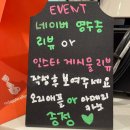 EVENT
네이버 영수증
리뷰 or
인스타 게시물 리뷰
작성후 보여주세요
오리애플 or 아메리
카노
증정 ♥